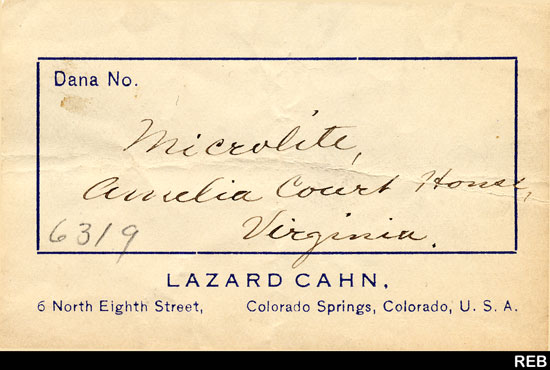 Dana No.
Microlite,
Amelia Court House,
6319
Virginia.
LAZARD CAHN,
6 North Eighth Street, Colorado Springs, Colorado, U. S. A.
REB